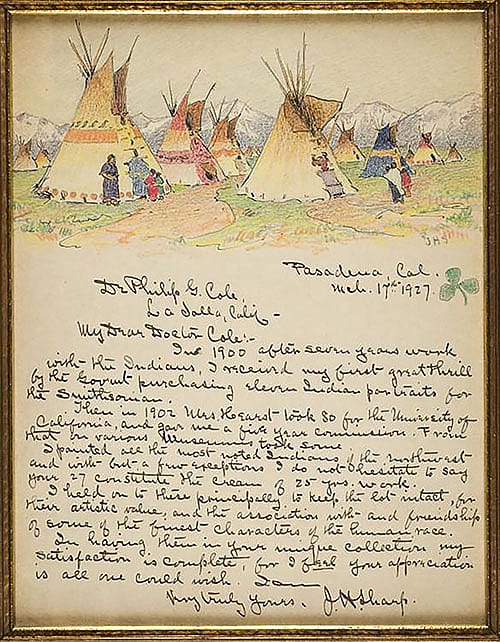 JHS
Pasadena, Cal.
Mch. 17th 1927.
Dr Philip G. Cole,
La Jolla, Calif –
My Dear Doctor Cole:-
In 1900 after seven years work
with the Indians, I received my first great thrill
by the Govmt purchasing eleven Indian portraits for
the Smithsonian.
Then in 1902 Mrs. Hearst took 80 for the University of
California, and gave me a five year commission. From
that on various Museums took some.
I painted all the most noted Indians of the northwest
and with but a few exceptions I do not hesitate to say
your 27 constitute the cream of 25 yrs. work.
I held on to these principally to keep the lot intact, for
their artistic value, and the association with and friendship
of some of the finest characters of the human race.
In having them in your unique collection my
satisfaction is complete for I feel your appreciation
is all one could wish. I am
Very truly yours, JHSharp.